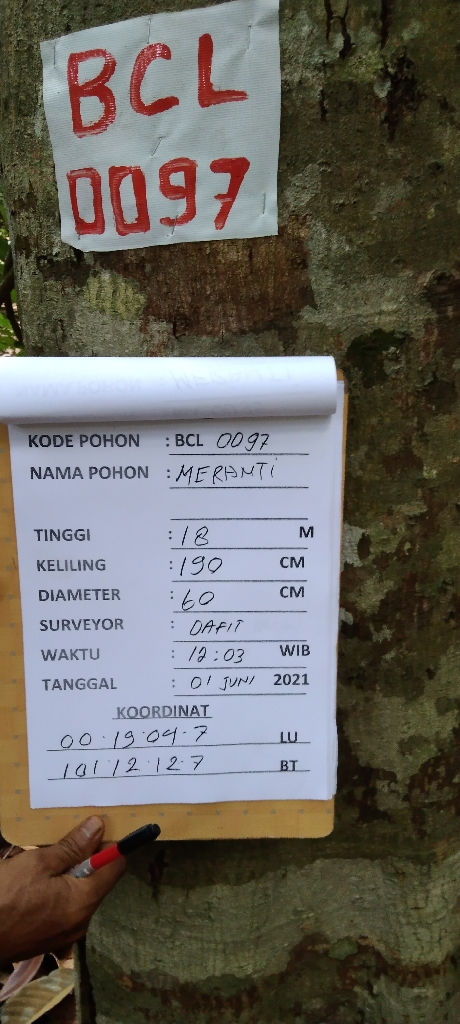 BCL
0097
KODE POHON : BCL 0097
NAMA POHON : MERANTI
TINGGI : 18 M
KELILING : 190 CM
DIAMETER : 60 CM
SURVEYOR : DAFIT
WAKTU : 12:03 WIB
TANGGAL : 01 JUNI 2021
KOORDINAT
00·19·04·7 LU
101·12·12·7 BT